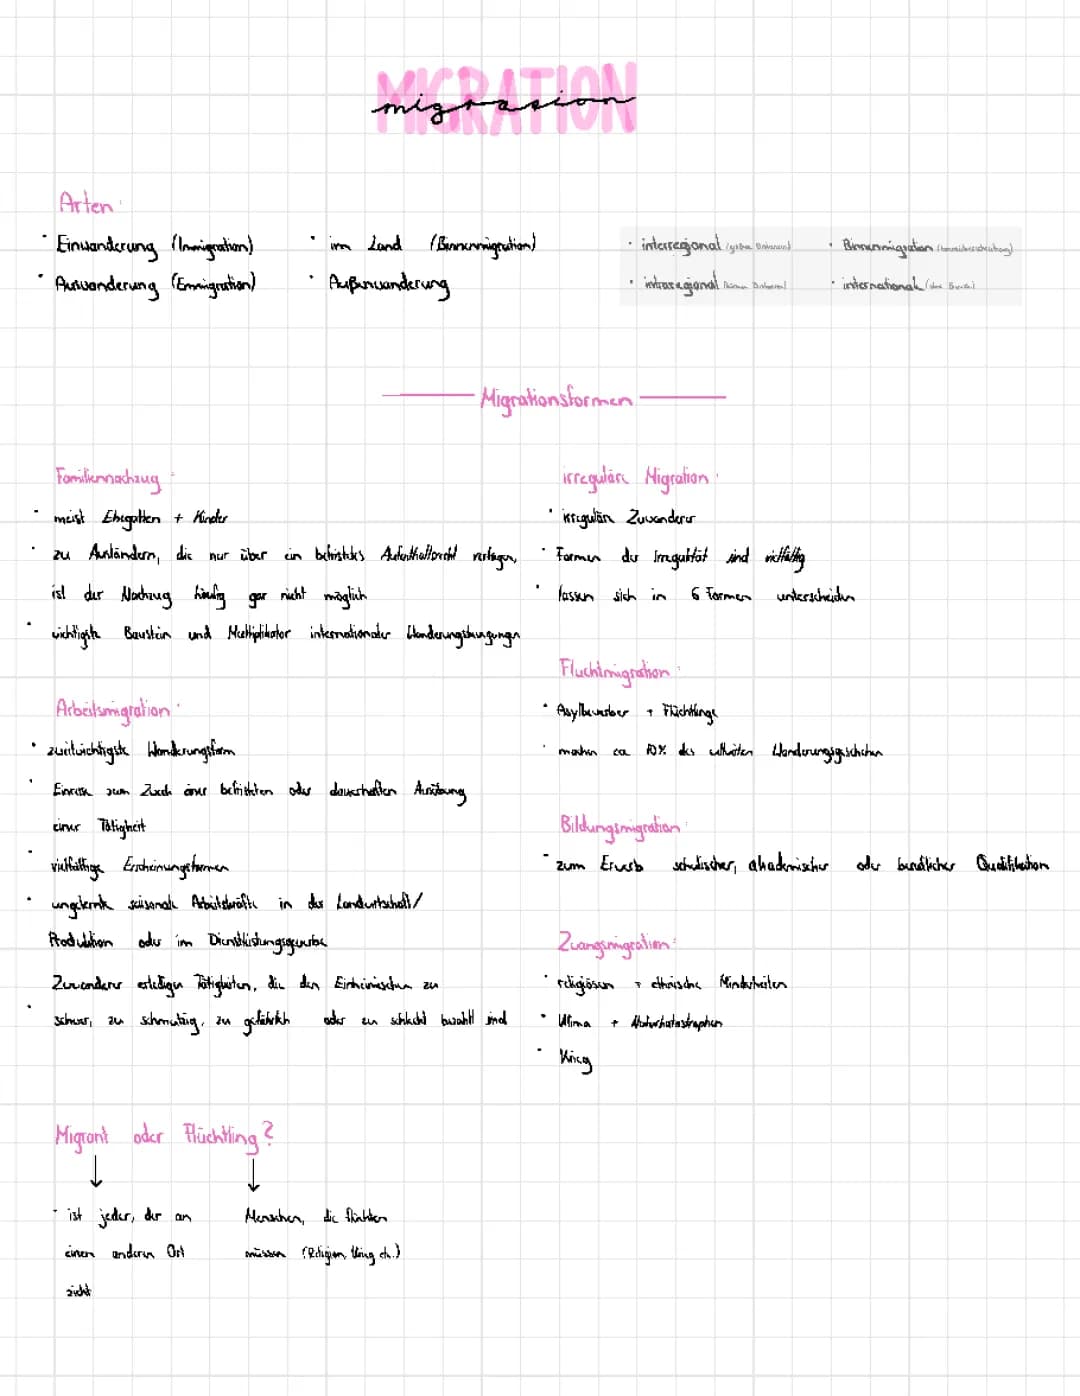 MIGRATION
migrasion
Arten:
· Einwanderung (Immigration)
· Auswanderung (Emmigration)
· im Land (Binnenmigration)
· Außenwanderung
· interregional
· intraregional
· Binnenmigration
· international
Migrationsformen
Familiennachzug:
· meist Ehegatten + Kinder
· zu Ausländern, die nur über ein befristetes Aufenthaltsrecht verfügen,
ist der Nachzug häufig gar nicht möglich
· wichtigste Baustein und Multiplikator internationaler Wanderungsbewegungen
Arbeitsmigration:
· zweitwichtigste Wanderungsform
· Einreise zum Zweck einer befristeten oder dauerhaften Ausübung
einer Tätigkeit
· vielfältige Erscheinungsformen
· ungelernte saisonale Arbeitskräfte in der Landwirtschaft/
Produktion oder im Dienstleistungsgewerbe
Zuwanderer erledigen Tätigkeiten, die den Einheimischen zu
· schwer, zu schmutzig, zu gefährlich oder zu schlecht bezahlt sind
irreguläre Migration:
· irreguläre Zuwanderer
· Formen der Irregularität sind vielfältig
· lassen sich in 6 Formen unterscheiden
Fluchtmigration:
· Asylbewerber + Flüchtlinge
· machen ca 10% des weltweiten Wanderungsgeschehen
Bildungsmigration:
· zum Erwerb schulischer, akademischer oder beruflicher Qualifikation
Zwangsmigration:
· religiösen + ethnische Minderheiten
· Klima + Naturkatastrophen
· Krieg
Migrant oder Flüchtling?
· ist jeder, der an
einen anderen Ort
zieht
Menschen, die flüchten
müssen (Religion, Krieg etc.)